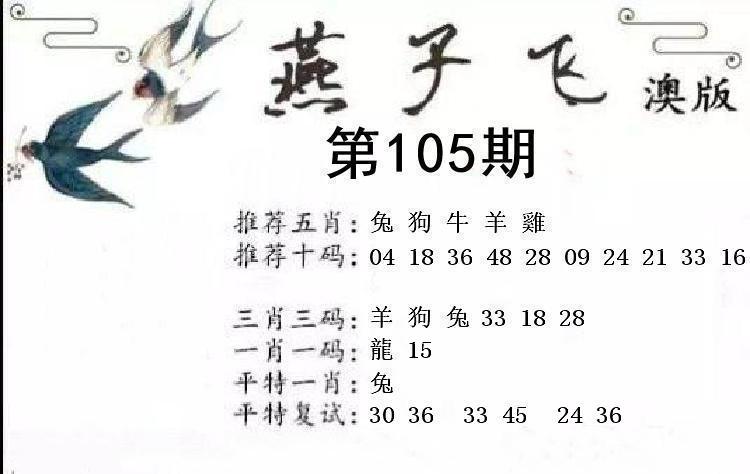 燕子飞 澳版
第105期
推荐五肖: 兔 狗 牛 羊 雞
推荐十码: 04 18 36 48 28 09 24 21 33 16
三肖三码: 羊 狗 兔 33 18 28
一肖一码: 龍 15
平特一肖: 兔
平特复试: 30 36 33 45 24 36